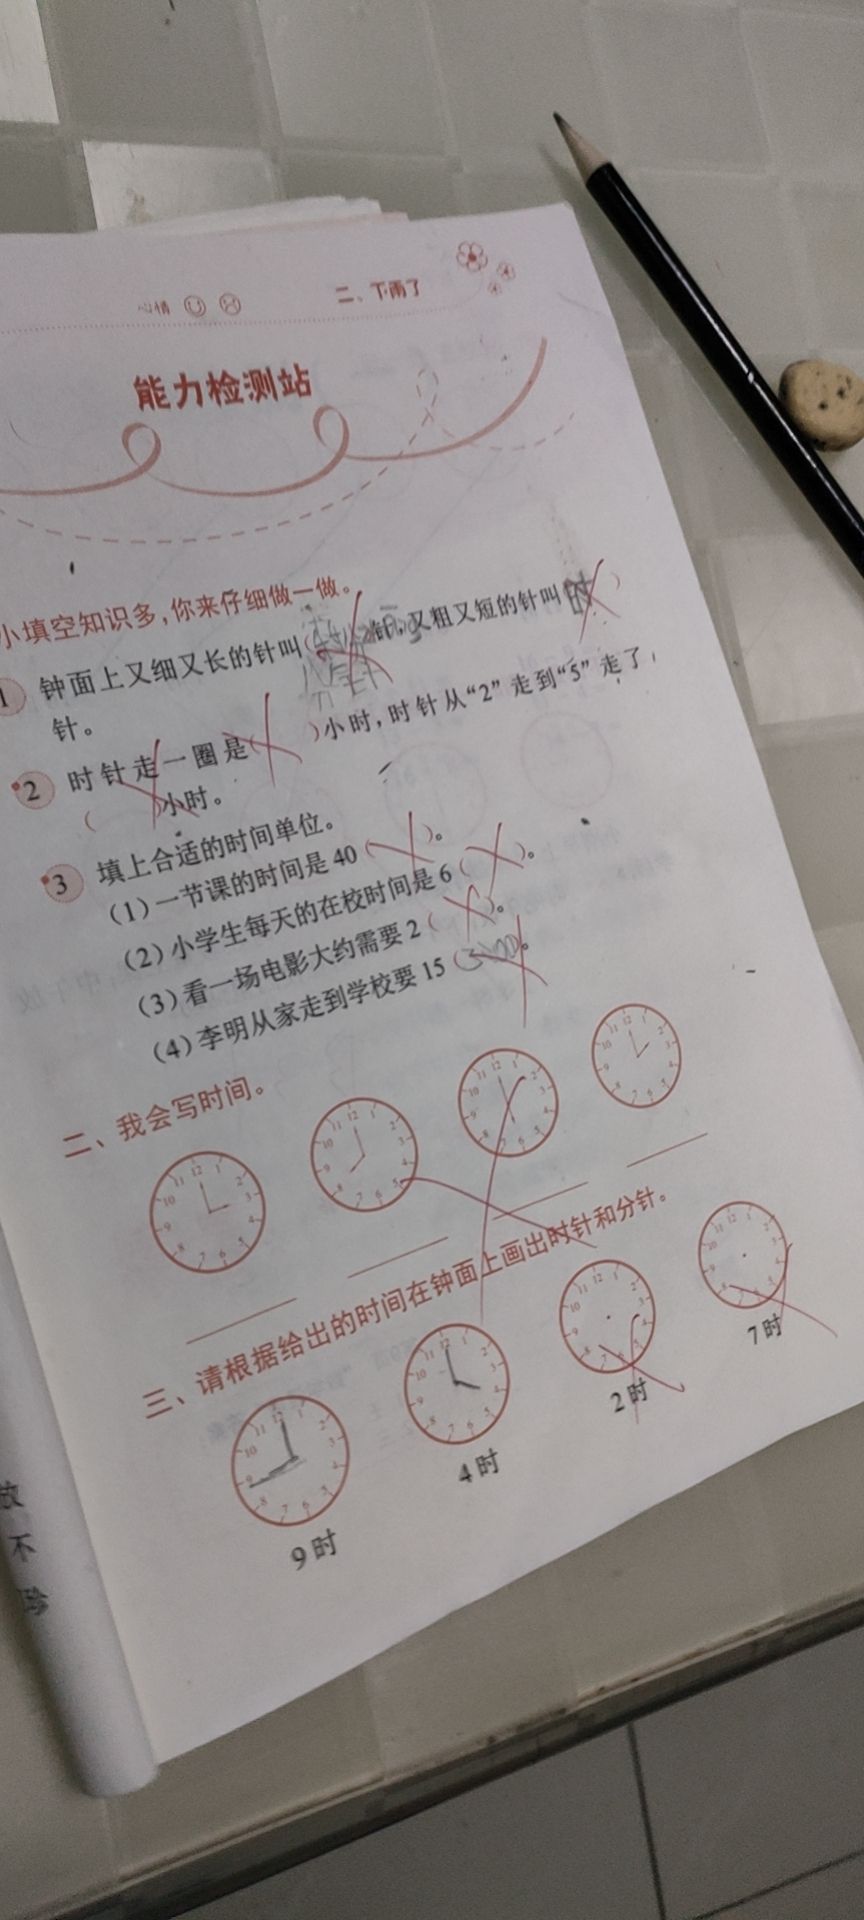 心情 二、下雨了
能力检测站
小填空知识多，你来仔细做一做。
1 钟面上又细又长的针叫( 分针 )针，又粗又短的针叫( 时 )
针。
2 时针走一圈是( )小时，时针从“2”走到“5”走了
( )小时。
3 填上合适的时间单位。
(1)一节课的时间是40( )。
(2)小学生每天的在校时间是6( )。
(3)看一场电影大约需要2( )。
(4)李明从家走到学校要15( )。
二、我会写时间。
三、请根据给出的时间在钟面上画出时针和分针。
9时
4时
2时
7时
放
不
珍